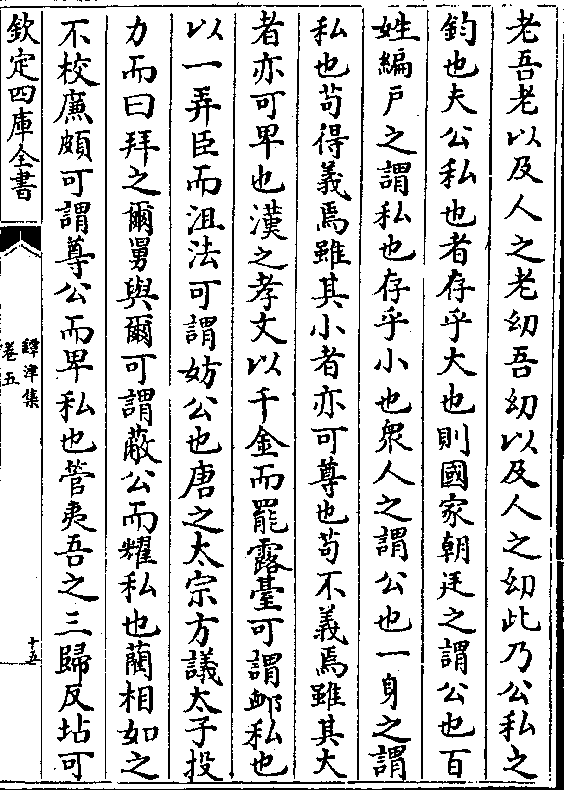 老吾老以及人之老幼吾幼以及人之幼此乃公私之
鈞也夫公私也者存乎大也則國家朝廷之謂公也百
姓編戶之謂私也存乎小也衆人之謂公也一身之謂
私也苟得義焉雖其小者亦可尊也苟不義焉雖其大
者亦可卑也漢之孝文以千金而罷露臺可謂䘏私也
以一弄臣而沮法可謂妨公也唐之太宗方議太子投
力而曰拜之爾舅與爾可謂蔽公而耀私也藺相如之
不校廉頗可謂尊公而卑私也管夷吾之三歸反坫可
欽定四庫全書
鐔津集
卷五
十五